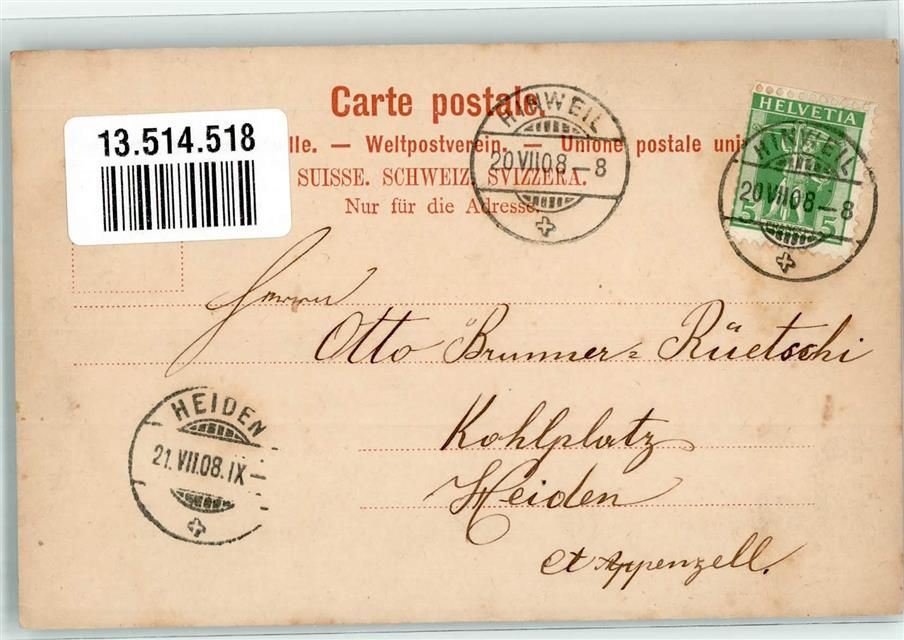 Carte postale.
13.514.518
lle. — Weltpostverein. — Unione postale uni
SUISSE. SCHWEIZ. SVIZZERA.
Nur für die Adresse.
HINWEIL
20 VII 08 – 8
HELVETIA
5 5
HINWEIL
20 VII 08 – 8
Herrn
Otto Brunner=Rüetschi
Kohlplatz
Heiden
Ct Appenzell.
HEIDEN
21. VII. 08. IX –